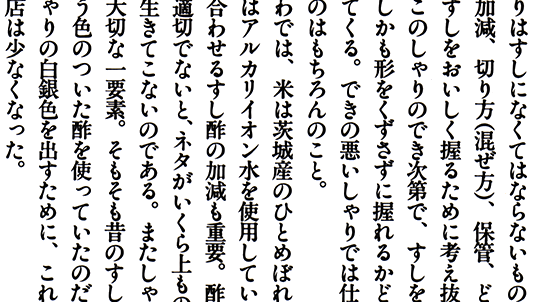 りはすしになくてはならないもの
加減、切り方(混ぜ方)、保管、ど
すしをおいしく握るために考え抜
このしゃりのでき次第で、すしを
しかも形をくずさずに握れるかど
てくる。できの悪いしゃりでは仕
のはもちろんのこと。
わでは、米は茨城産のひとめぼれ
はアルカリイオン水を使用してい
合わせるすし酢の加減も重要。酢
適切でないと、ネタがいくら上もの
生きてこないのである。またしゃ
大切な一要素。そもそも昔のすし
う色のついた酢を使っていたのだ
ゃりの白銀色を出すために、これ
店は少なくなった。